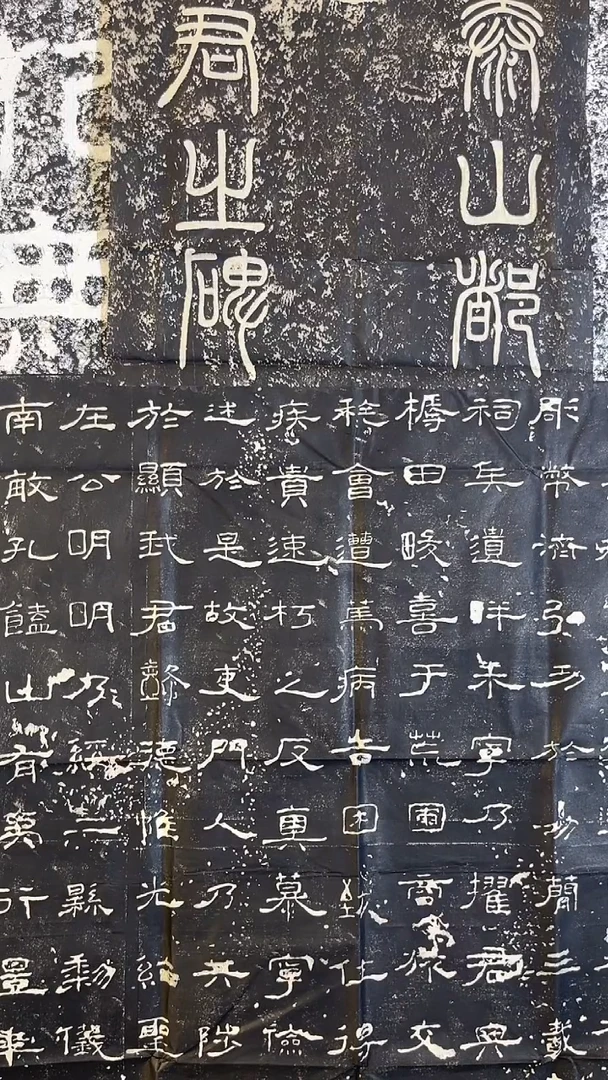 泰山都
君之碑
彫幣濟弘功於易簡三載
祠兵遺畔未寧乃擢君典
榑田畯喜于荒圃商旅交
稔會遭篤病告困致仕得
疾貴速朽之反真慕寧儉
述於是故吏門人乃共陟
於顯我君懿德惟光紹聖
在公明明乃綏二縣黎儀
南畝孔饁山有夷行豐年